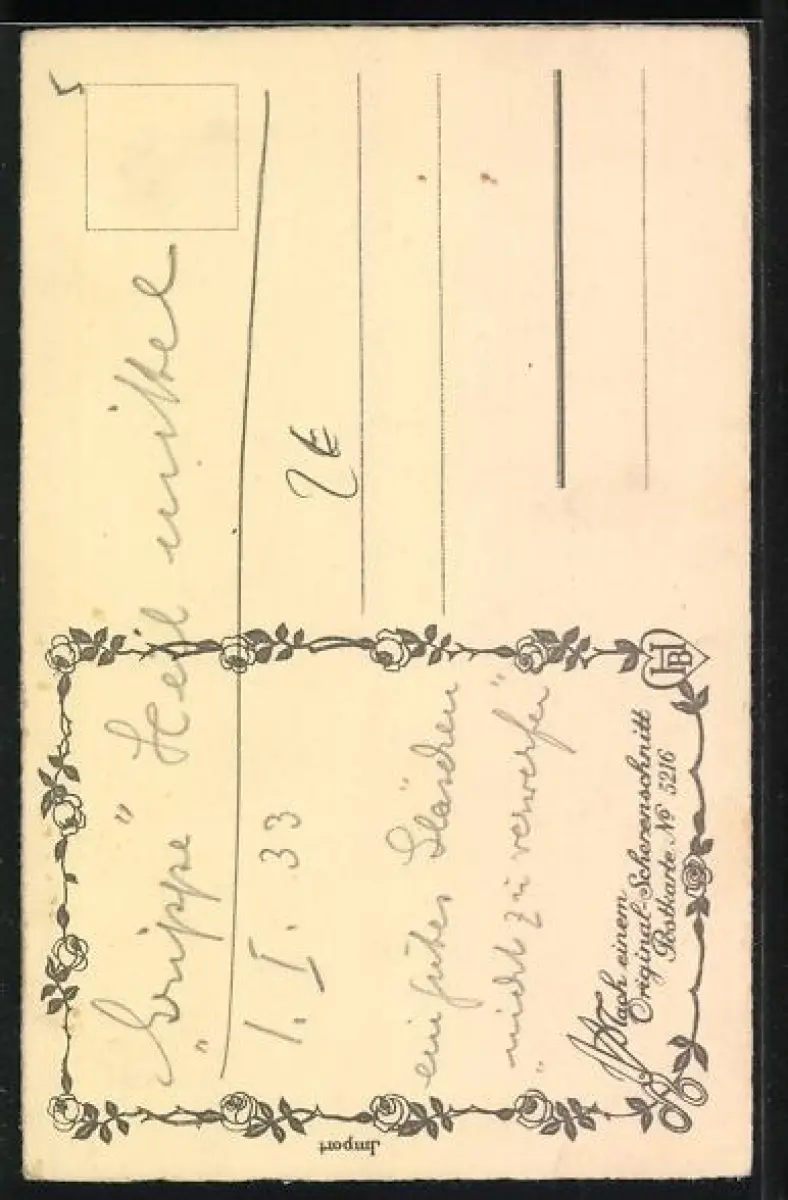 „Grippe“ Heilmittel
1. I. 33
2€
ein gutes Gläschen“
„nicht zu verwerfen“
Nach einem
Original-Scherenschnitt
Postkarte No 5216
HB
Import